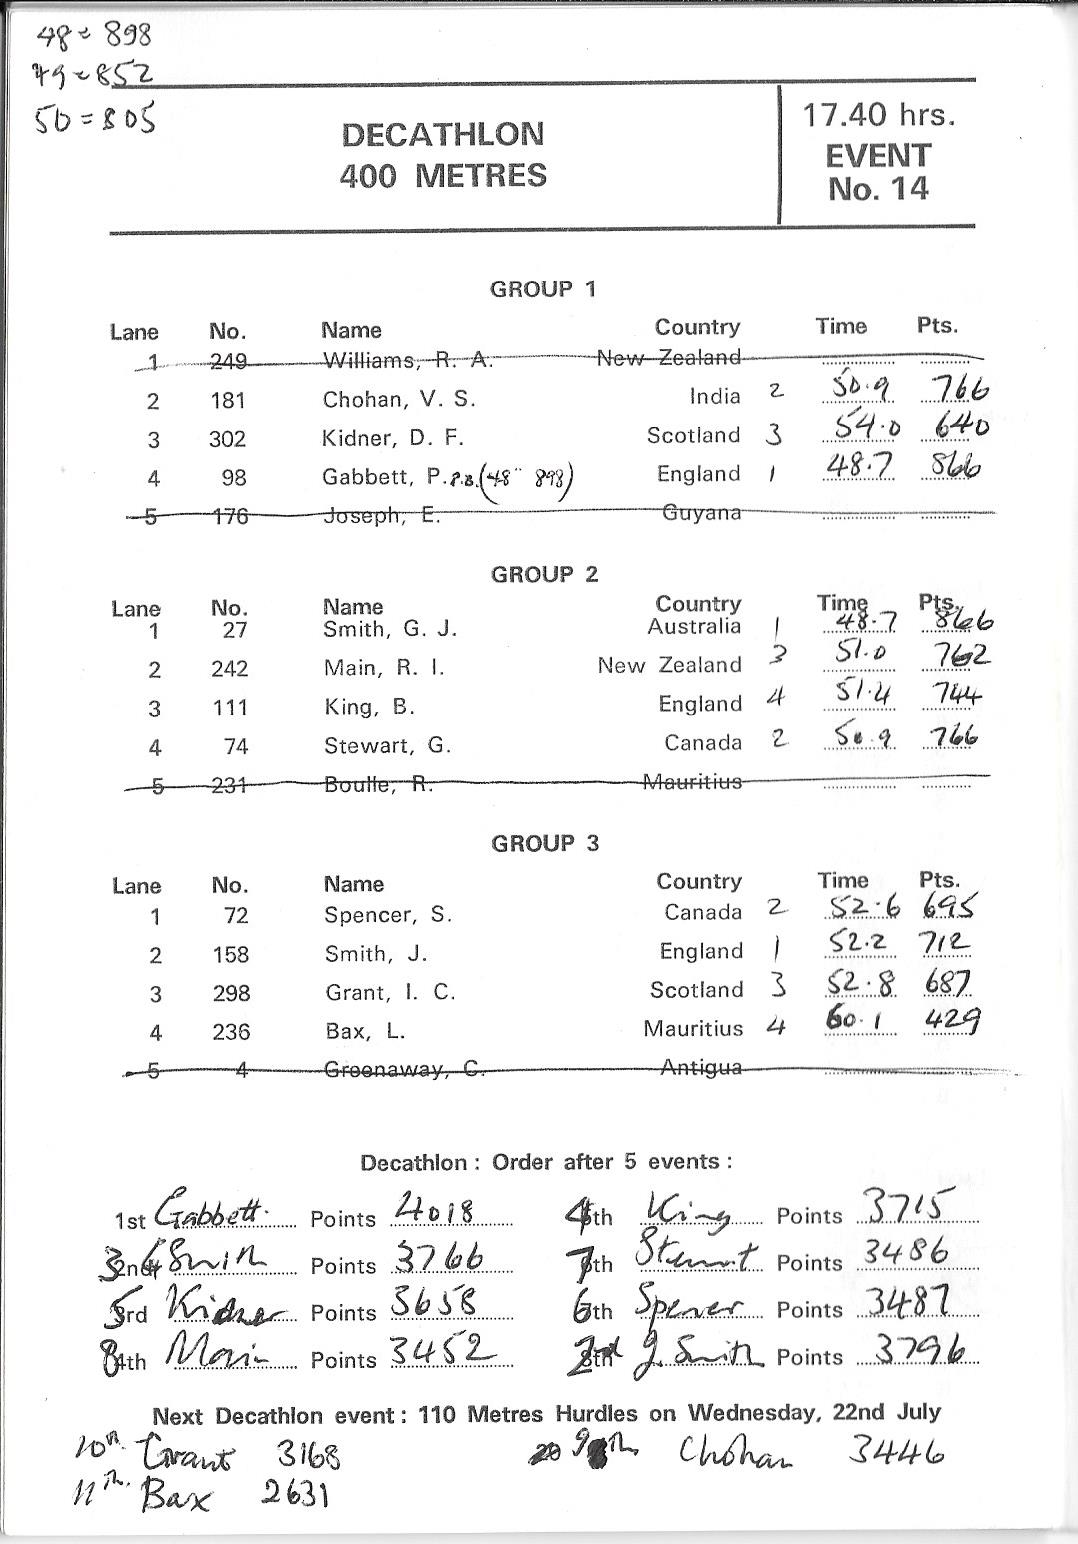 48 = 898
49 = 852
50 = 805
DECATHLON
400 METRES
17.40 hrs.
EVENT
No. 14
GROUP 1
Lane No. Name Country Time Pts.
1 249 Williams, R. A. New Zealand
2 181 Chohan, V. S. India 2 50.9 766
3 302 Kidner, D. F. Scotland 3 54.0 640
4 98 Gabbett, P. P.B. (48" 898) England 1 48.7 866
5 176 Joseph, E. Guyana
GROUP 2
Lane No. Name Country Time Pts.
1 27 Smith, G. J. Australia 1 48.7 866
2 242 Main, R. I. New Zealand 3 51.0 762
3 111 King, B. England 4 51.4 744
4 74 Stewart, G. Canada 2 50.9 766
5 231 Boulle, R. Mauritius
GROUP 3
Lane No. Name Country Time Pts.
1 72 Spencer, S. Canada 2 52.6 695
2 158 Smith, J. England 1 52.2 712
3 298 Grant, I. C. Scotland 3 52.8 687
4 236 Bax, L. Mauritius 4 60.1 429
5 4 Greenaway, C. Antigua
Decathlon : Order after 5 events :
1st Gabbett. Points 4018 4th King Points 3715
3 2nd G Smith Points 3766 7th Stewart Points 3486
5 3rd Kidner Points 3658 6th Spencer Points 3487
8 4th Main Points 3452 2nd 8th J. Smith Points 3796
Next Decathlon event : 110 Metres Hurdles on Wednesday, 22nd July
10th Grant 3168 9th Chohan 3446
11th. Bax 2631